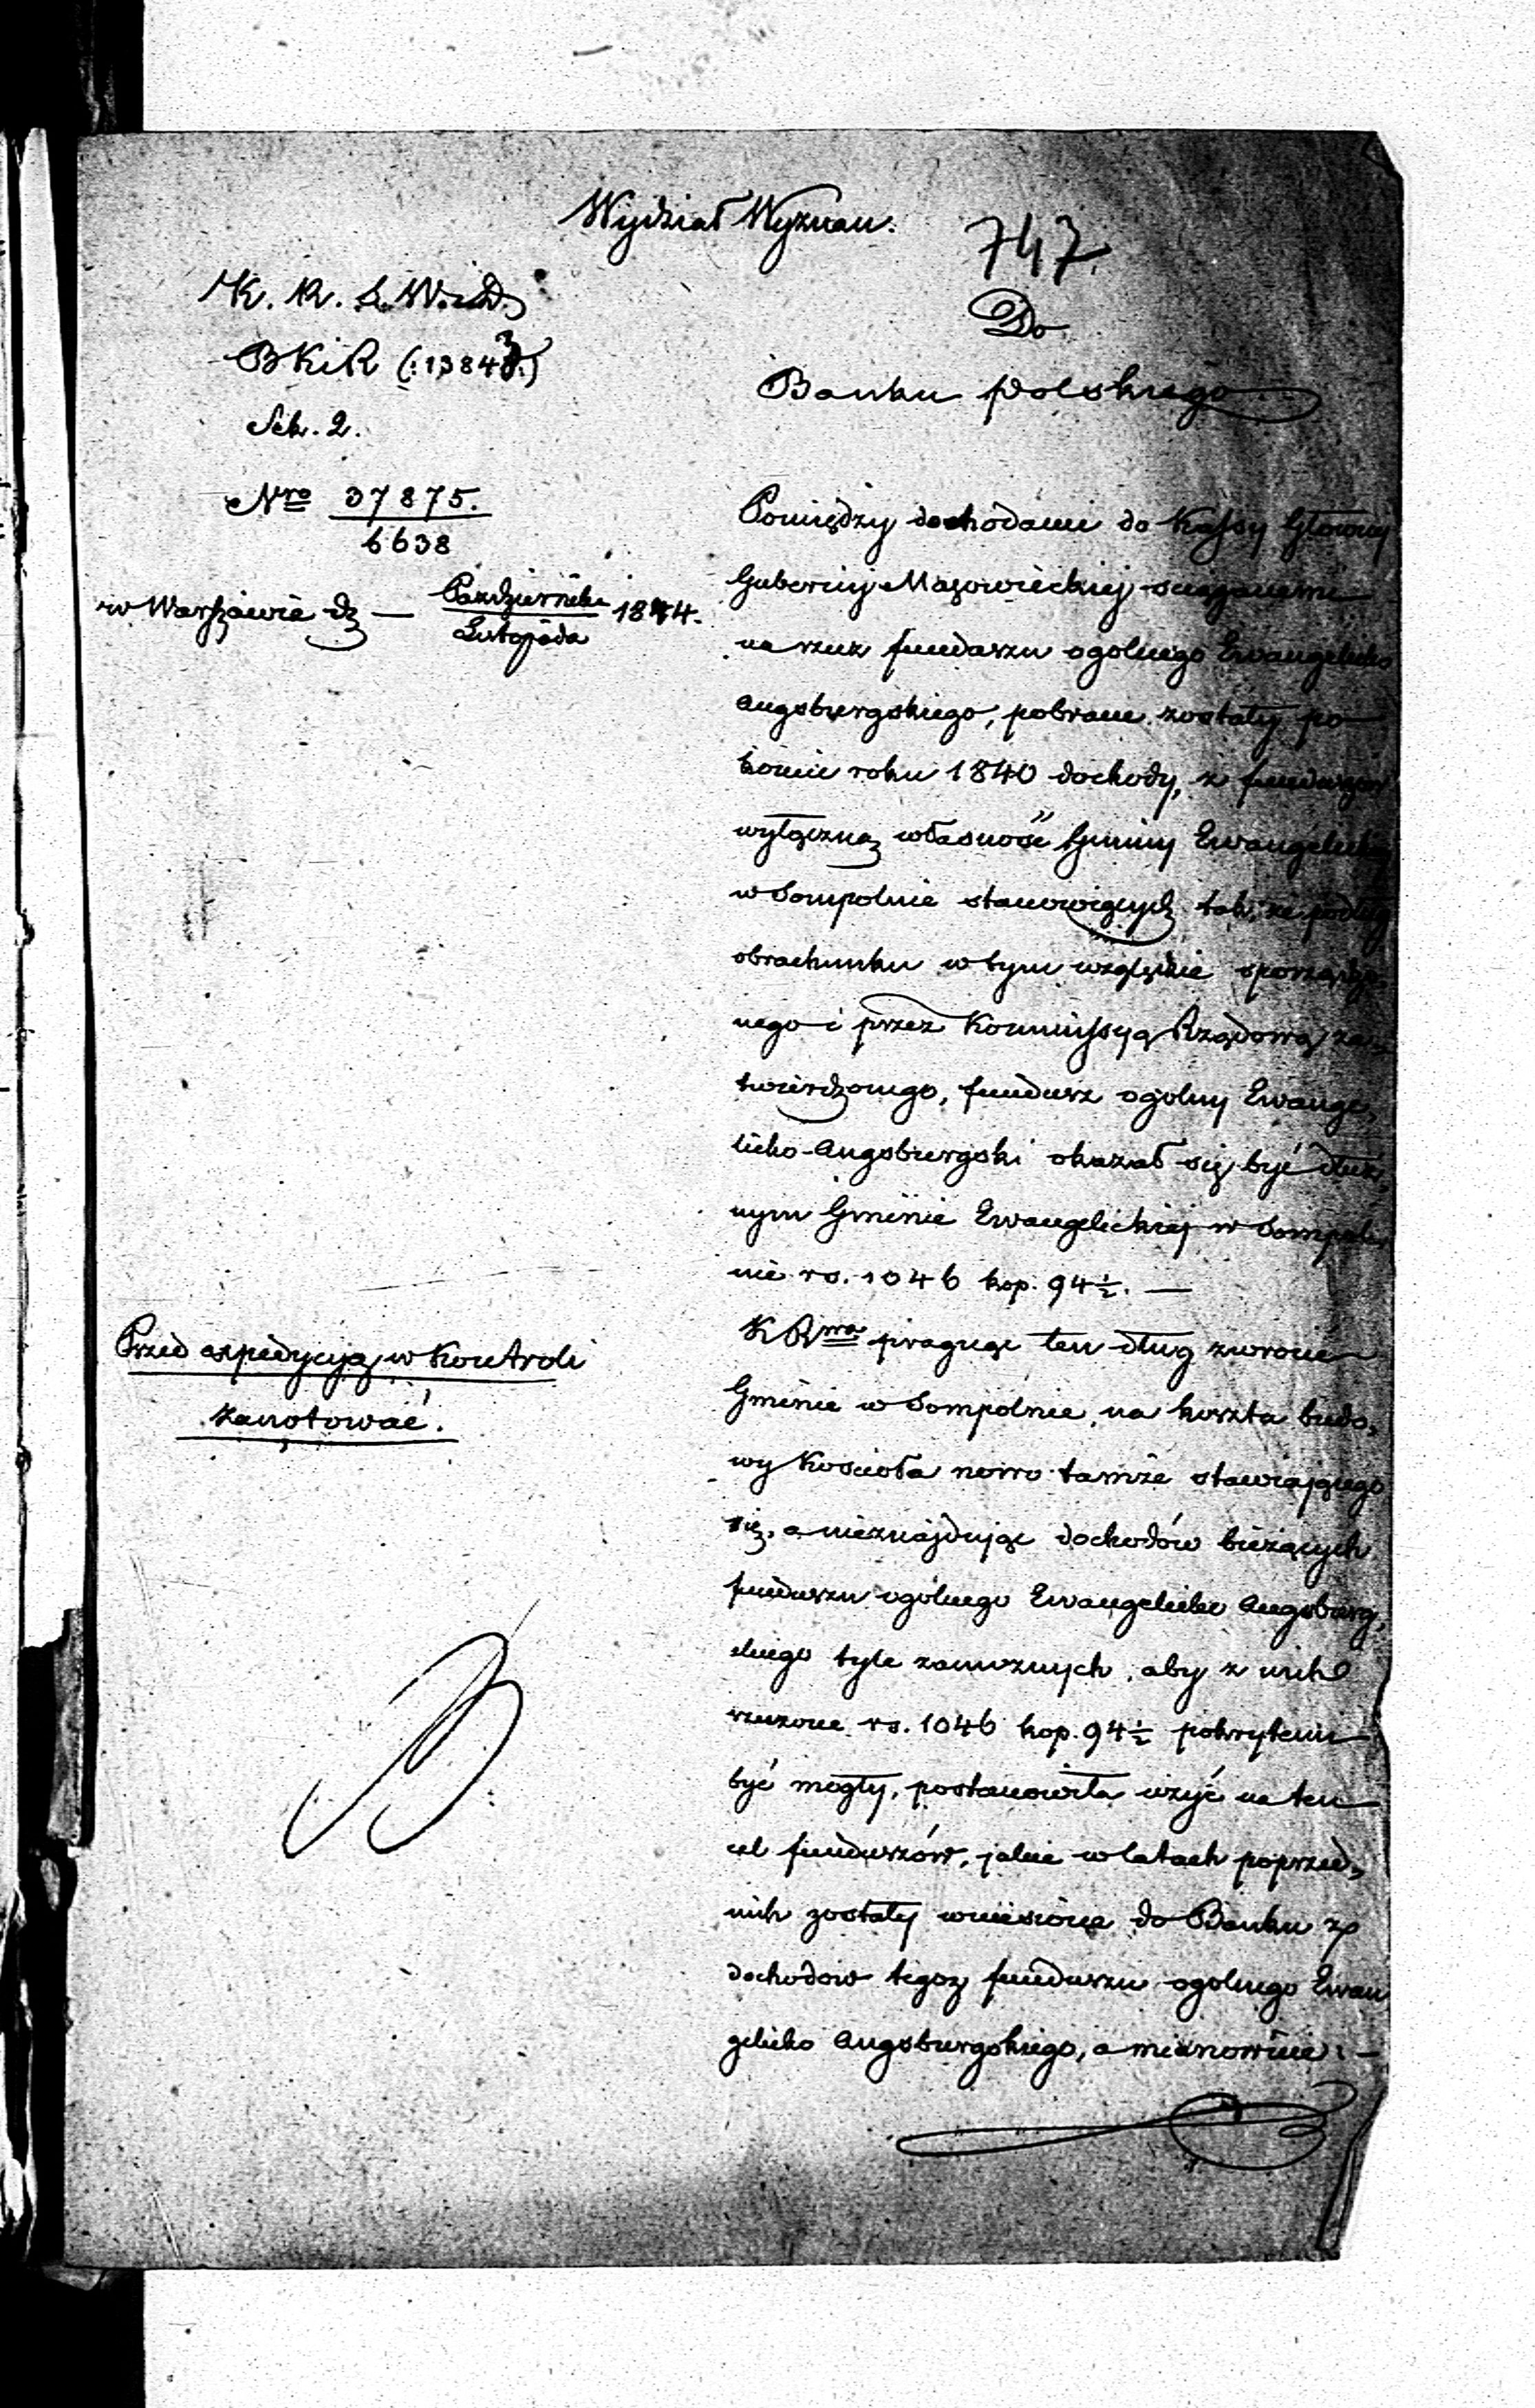 Wydział Wyznań.
747.
K. R. S. W. i D.
BKiR (:13843:)
Sek. 2.
Nro 37875.
6638
w Warszawie d. — Października
Listopada 1844.
Do
Banku Polskiego
Pomiędzy dochodami do Kassy Głowney
Gubernij Mazowieckiej sciąganemi
na rzecz funduszu ogolnego Ewangelicko
Augsburgskiego, pobrane zostały po
koniec roku 1840 dochody, z funduszow
wyłączną własność Gminy Ewangelickiej
w Sompolnie stanowiących tak, że podług
obrachunku w tym względzie sporządzo,
nego i przez Kommissyą Rządową za,
twierdzonego, fundusz ogolny Ewange,
licko-Augsburgski okazał się być dłuż,
nym Gminie Ewangelickiej w Sompol,
nie rs. 1046 kop. 94½. —
K Rwa pragnąc ten dług zwrocić
Gminie w Sompolnie, na koszta budo,
wy Kościoła nowo tamże stawiającego
się, a nieznajdując dochodów bieżących
funduszu ogólnego Ewangelicko Augsburg,
skiego tyle zamożnych, aby z nich
rzeczone rs. 1046 kop. 94½ pokrytemi
być mogły, postanowiła użyć na ten
cel funduszów, jakie w latach poprzed,
nich zostały wniesione do Banku z
dochodow tegoż funduszu ogolnego Ewan
gelicko Augsburgskiego, a mianowicie: —
Przed expedycyą w Kontroli
zanotować.